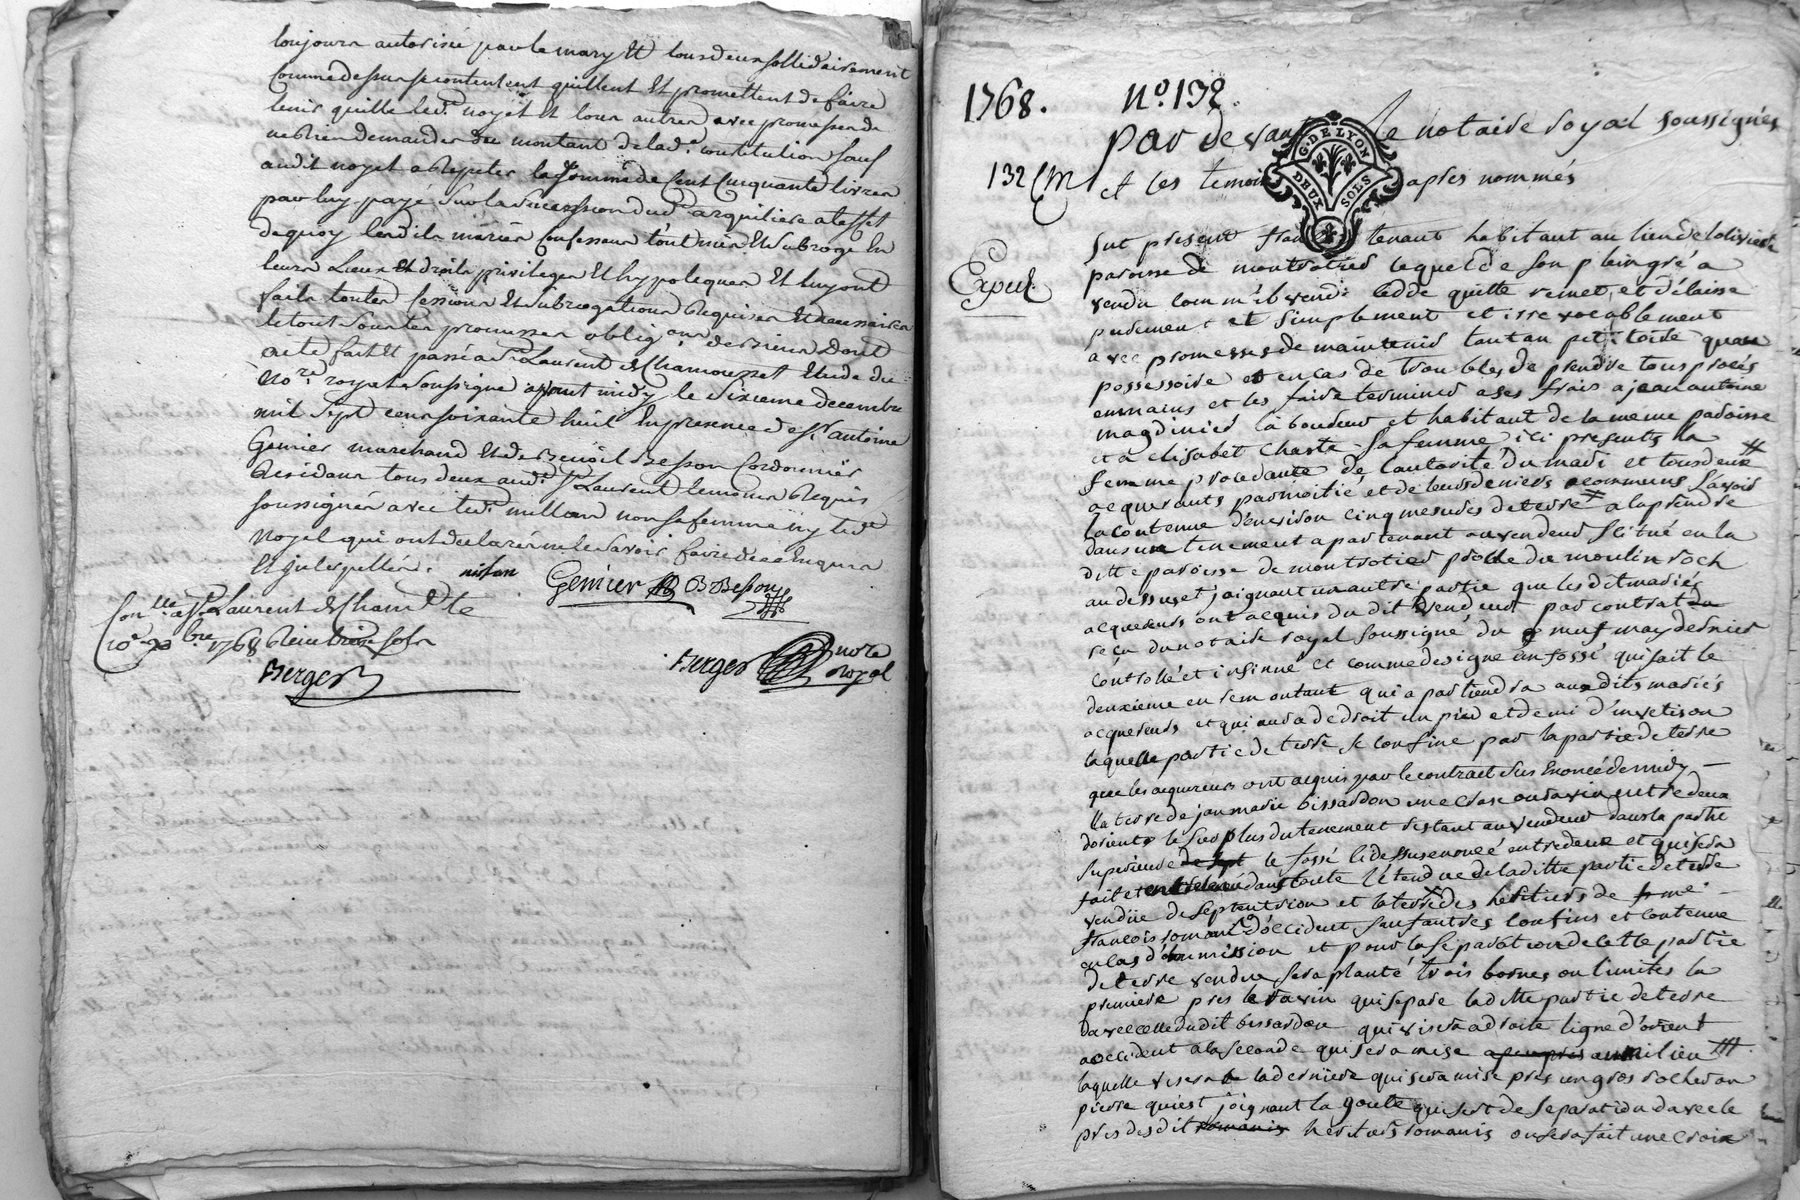 toujours autorisée par le mary Et tous deux sollidairement
Comme dessus se contentent quittent Et promettent de faire
tenir quitte led. noyet Et tous autres avec promesse de
ne Rien demander du montant de lad.e constitution sauf
audit noyet a Repeter la somme de Cent Cinquante livres
par luy payé sur la succession dud. arquiliere a l'effet
de quoy lesdits mariés Confesseurs l'ont mis Et subrogé En
leurs Lieux Et droits privileges Et hypoteques Et luy ont
faits toutes Cessions Et subrogations Requises Et necessaires
le tout sous les promesses oblig.ons de biens Dont
acte fait Et passé a St Laurent de Chamousset Etude du
No.re royal soussigné avant midy le sixieme decembre
mil sept cent soixante huit En presence de sr antoine
Genier marchand Et de Benoit Besson Cordonnier
Residans tous deux aud. St Laurent temoins Requis
soussignés avec led. millan non sa femme ny led.
Noyel qui ont declaré ne le savoir faire de ce Enquis
Et interpellés.
millan Genier B Besson
Con.lle a St Laurent de Cham.te
10e xbre 1768 Reçu treize sols
Berger
Berger no.re
Royal
1768. N.o 132.
G. DE LYON
DEUX SOLS
par devant Le notaire royal soussigné
132 Cm
et les temoins apres nommés
Exped.
fut present tenant habitant au lieu de loliviere
paroisse de montrotier lequel de son plein gré a
vendu comme il vend cedde quitte remet et délaisse
purement et simplement et irrevocablement
avec promesses de maintenir tant au petitoire quau
possessoire et en cas de troubles de prendre tous procés
en mains et les faire terminer a ses frais a jean antoine
magdinier laboureur et habitant de la meme paroisse
et a elisabet Charte sa femme, ici presents la
femme procedante de l'autorité du mari et tous deux #
acquerants par moitié et de leurs deniers communs savoir
la contenue d'environ cinq mesures de terre a la prendre
dans un tenement apartenant au vendeur situé en la
ditte paroisse de montrotier proche du moulin roch
au dessus et joignant un autre partie que lesdit mariés
acquereurs ont acquis du dit vendeur par contrat
reçu du notaire royal soussigné du neuf may dernier
controllé et insinué et comme designe un fossé qui fait le
deuxieme en remontant qui apartiendra auxdits mariés
acquereurs et qui aura de droit un pied et demi d'invetison
laquelle partie de terre se confine par la partie de terre
que les acquereurs ont acquis par le contract sus Enoncé de midy
la terre de jean marie bissardon une crase ou ravin entre deux
d'orient le surplus du tenement restant au vendeur dans la partie
superieure le fossé ci dessus enoncé entre deux et qui sera
fait et dans toute l'étendue de laditte partie de terre
vendüe de septentrion et la terre des heritiers de me
françois romani d'occident sauf autres confins et contenue
en cas d'ommission et pour la separation de cette partie
de terre vendue sera planté trois bornes ou limites la
premiere pres le ravin qui separe laditte partie de terre
davec celle dudit bissardon qui visera a droite ligne d'orient
a occident a la seconde qui sera mise au milieu #
laquelle visera a la derniere qui sera mise pres un gros rocher ou
pierre qui est joignant la goute qui sert de separation davec le
pres desdit heritiers romanis ou sera fait une croix